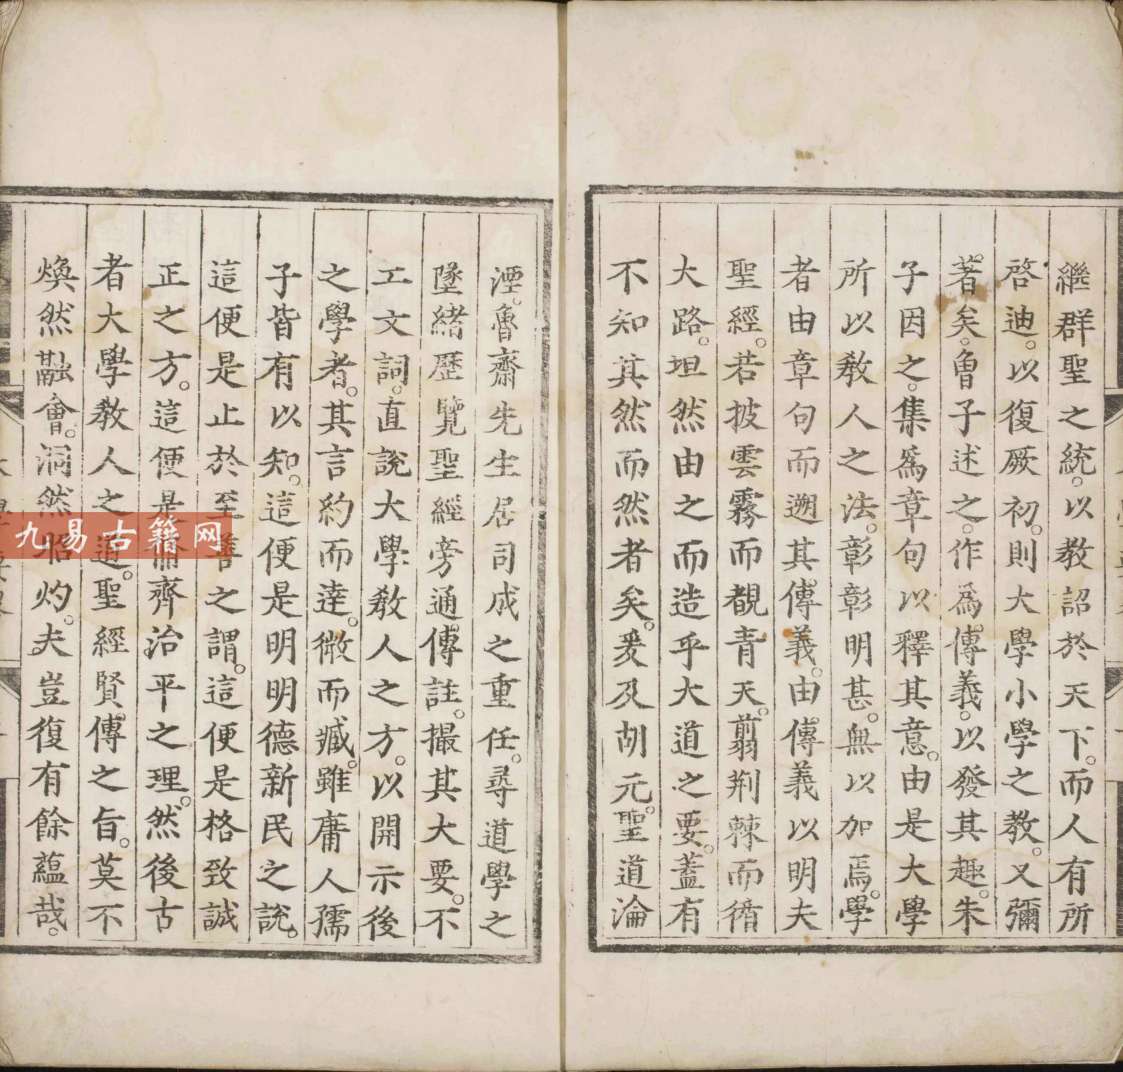 繼群聖之統。以教詔於天下。而人有所
啓迪。以復厥初。則大學小學之教。又彌
著矣。魯子述之。作爲傳義。以發其趣。朱
子因之。集爲章句以釋其意。由是大學
所以教人之法。彰彰明甚。無以加焉。學
者由章句而遡其傳義。由傳義以明夫
聖經。若披雲霧而覩青天。翦荆棘而循
大路。坦然由之而造乎大道之要。蓋有
不知其然而然者矣。爰及胡元。聖道淪
湮。魯齋先生居司成之重任。尋道學之
墜緒歷覽聖經旁通傳註。撮其大要。不
工文詞。直說大學教人之方。以開示後
之學者。其言約而達。微而臧。雖庸人孺
子皆有以知。這便是明明德新民之說。
這便是止於至善之謂。這便是格致誠
正之方。這便是脩齊治平之理。然後古
者大學教人之道。聖經賢傳之旨。莫不
煥然融會。洞然昭灼。夫豈復有餘蘊哉。
九易古籍网